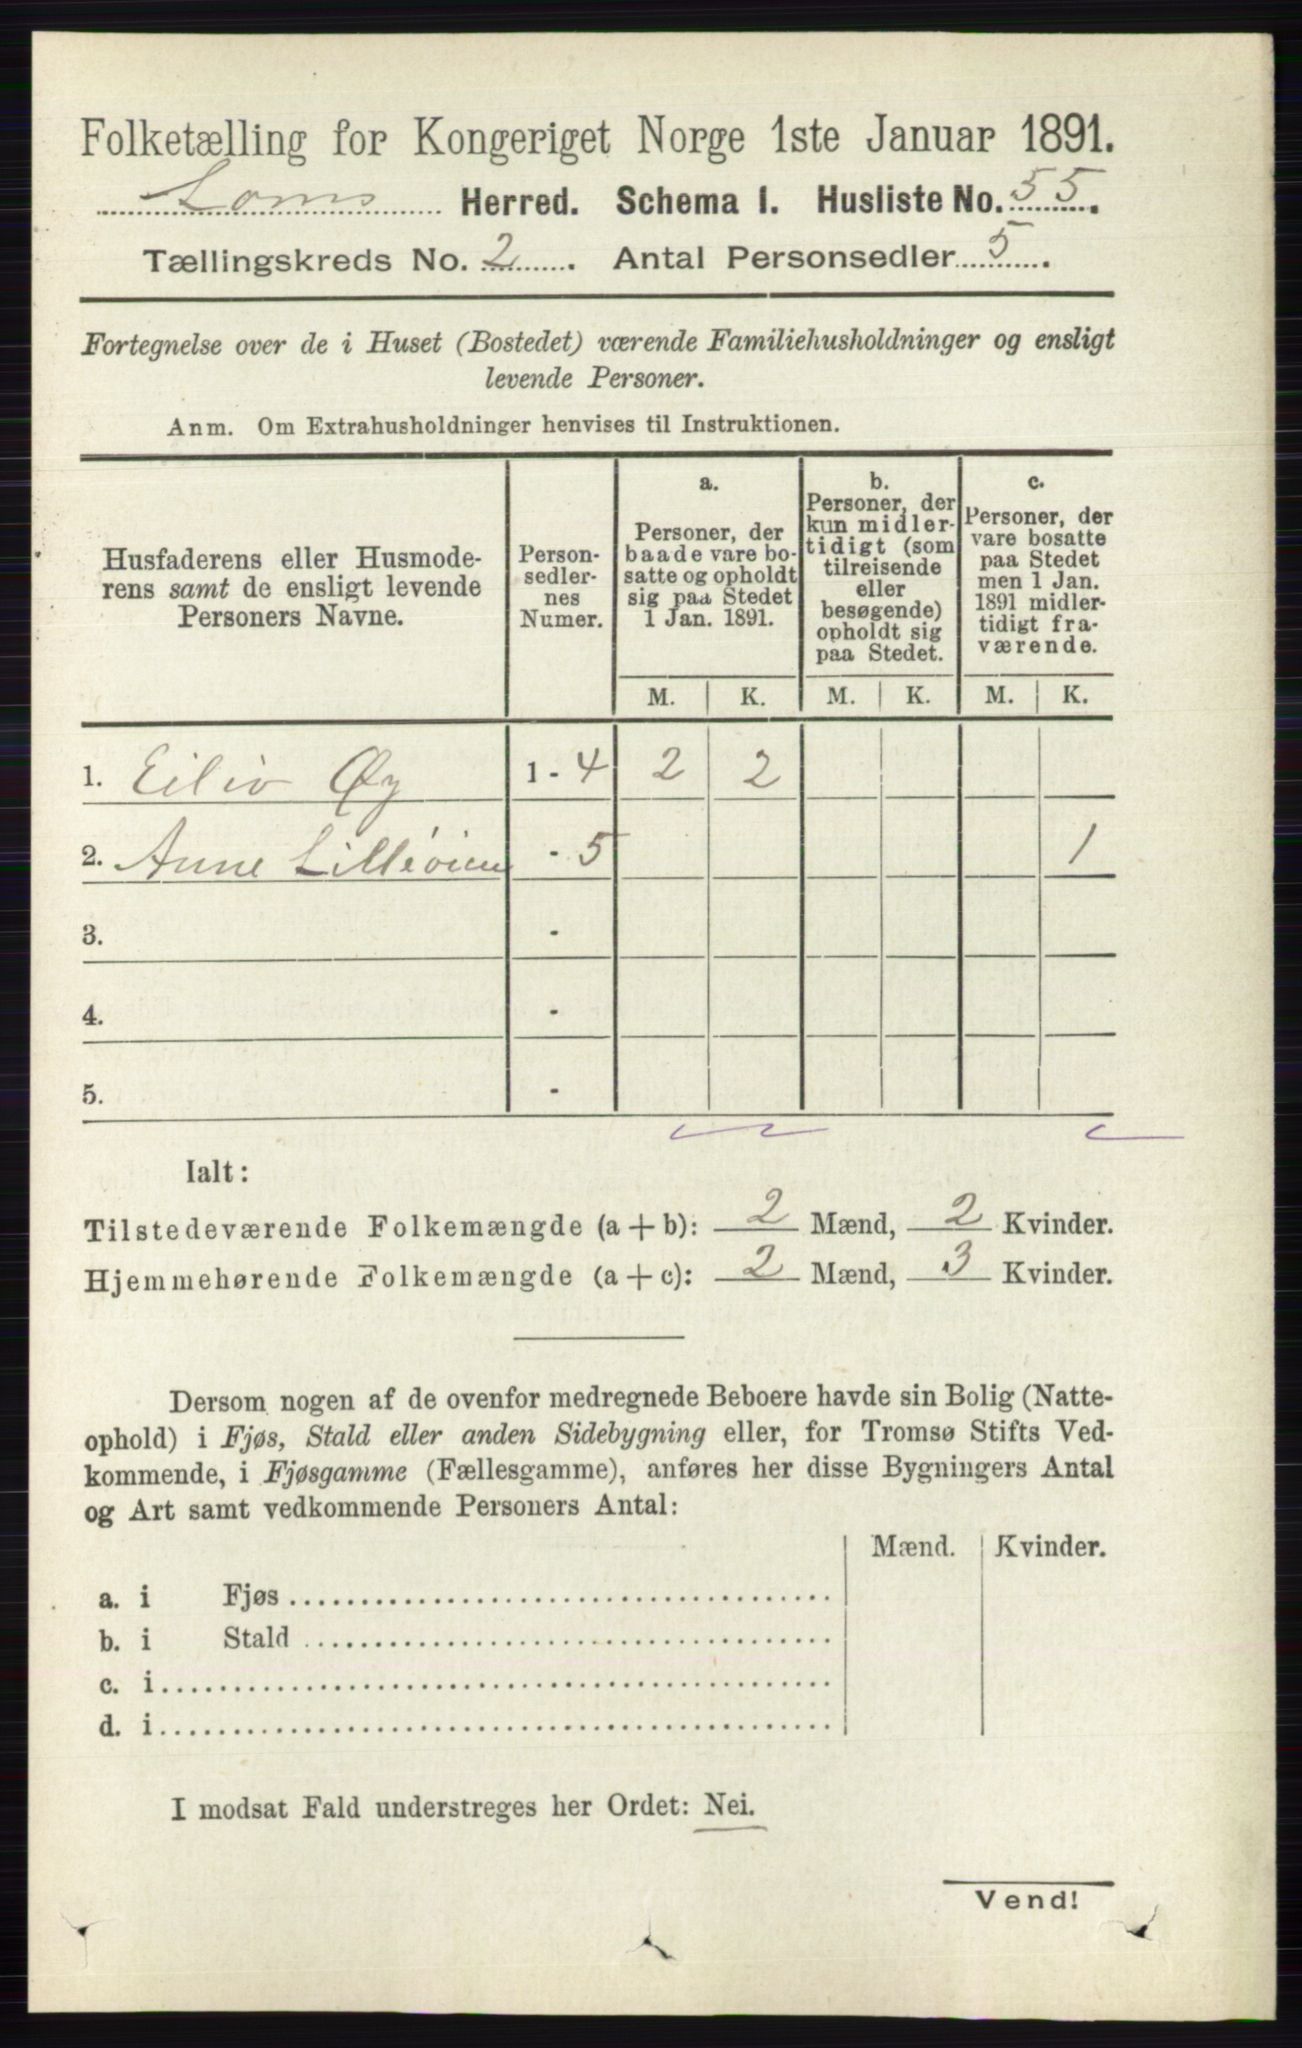 Folketælling for Kongeriget Norge 1ste Januar 1891.
Loms Herred. Schema I. Husliste No. 55.
Tællingskreds No. 2. Antal Personsedler 5.
Fortegnelse over de i Huset (Bostedet) værende Familiehusholdninger og ensligt
levende Personer.
Anm. Om Extrahusholdninger henvises til Instruktionen.
Husfaderens eller Husmode-
rens samt de ensligt levende
Personers Navne.
Person-
sedler-
nes
Numer.
a.
Personer, der
baade vare bo-
satte og opholdt
sig paa Stedet
1 Jan. 1891.
b.
Personer, der
kun midler-
tidigt (som
tilreisende
eller
besøgende)
opholdt sig
paa Stedet.
c.
Personer, der
vare bosatte
paa Stedet
men 1 Jan.
1891 midler-
tidigt fra-
værende.
M. K. M. K. M. K.
1. Eiliv Øy 1 - 4 2 2
2. Anne Lilleøien - 5 1
3. -
4. -
5. -
Ialt:
Tilstedeværende Folkemængde (a + b): 2 Mænd, 2 Kvinder.
Hjemmehørende Folkemængde (a + c): 2 Mænd, 3 Kvinder.
Dersom nogen af de ovenfor medregnede Beboere havde sin Bolig (Natte-
ophold) i Fjøs, Stald eller anden Sidebygning eller, for Tromsø Stifts Ved-
kommende, i Fjøsgamme (Fællesgamme), anføres her disse Bygningers Antal
og Art samt vedkommende Personers Antal:
Mænd. Kvinder.
a. i Fjøs
b. i Stald
c. i
d. i
I modsat Fald understreges her Ordet: Nei.
Vend!